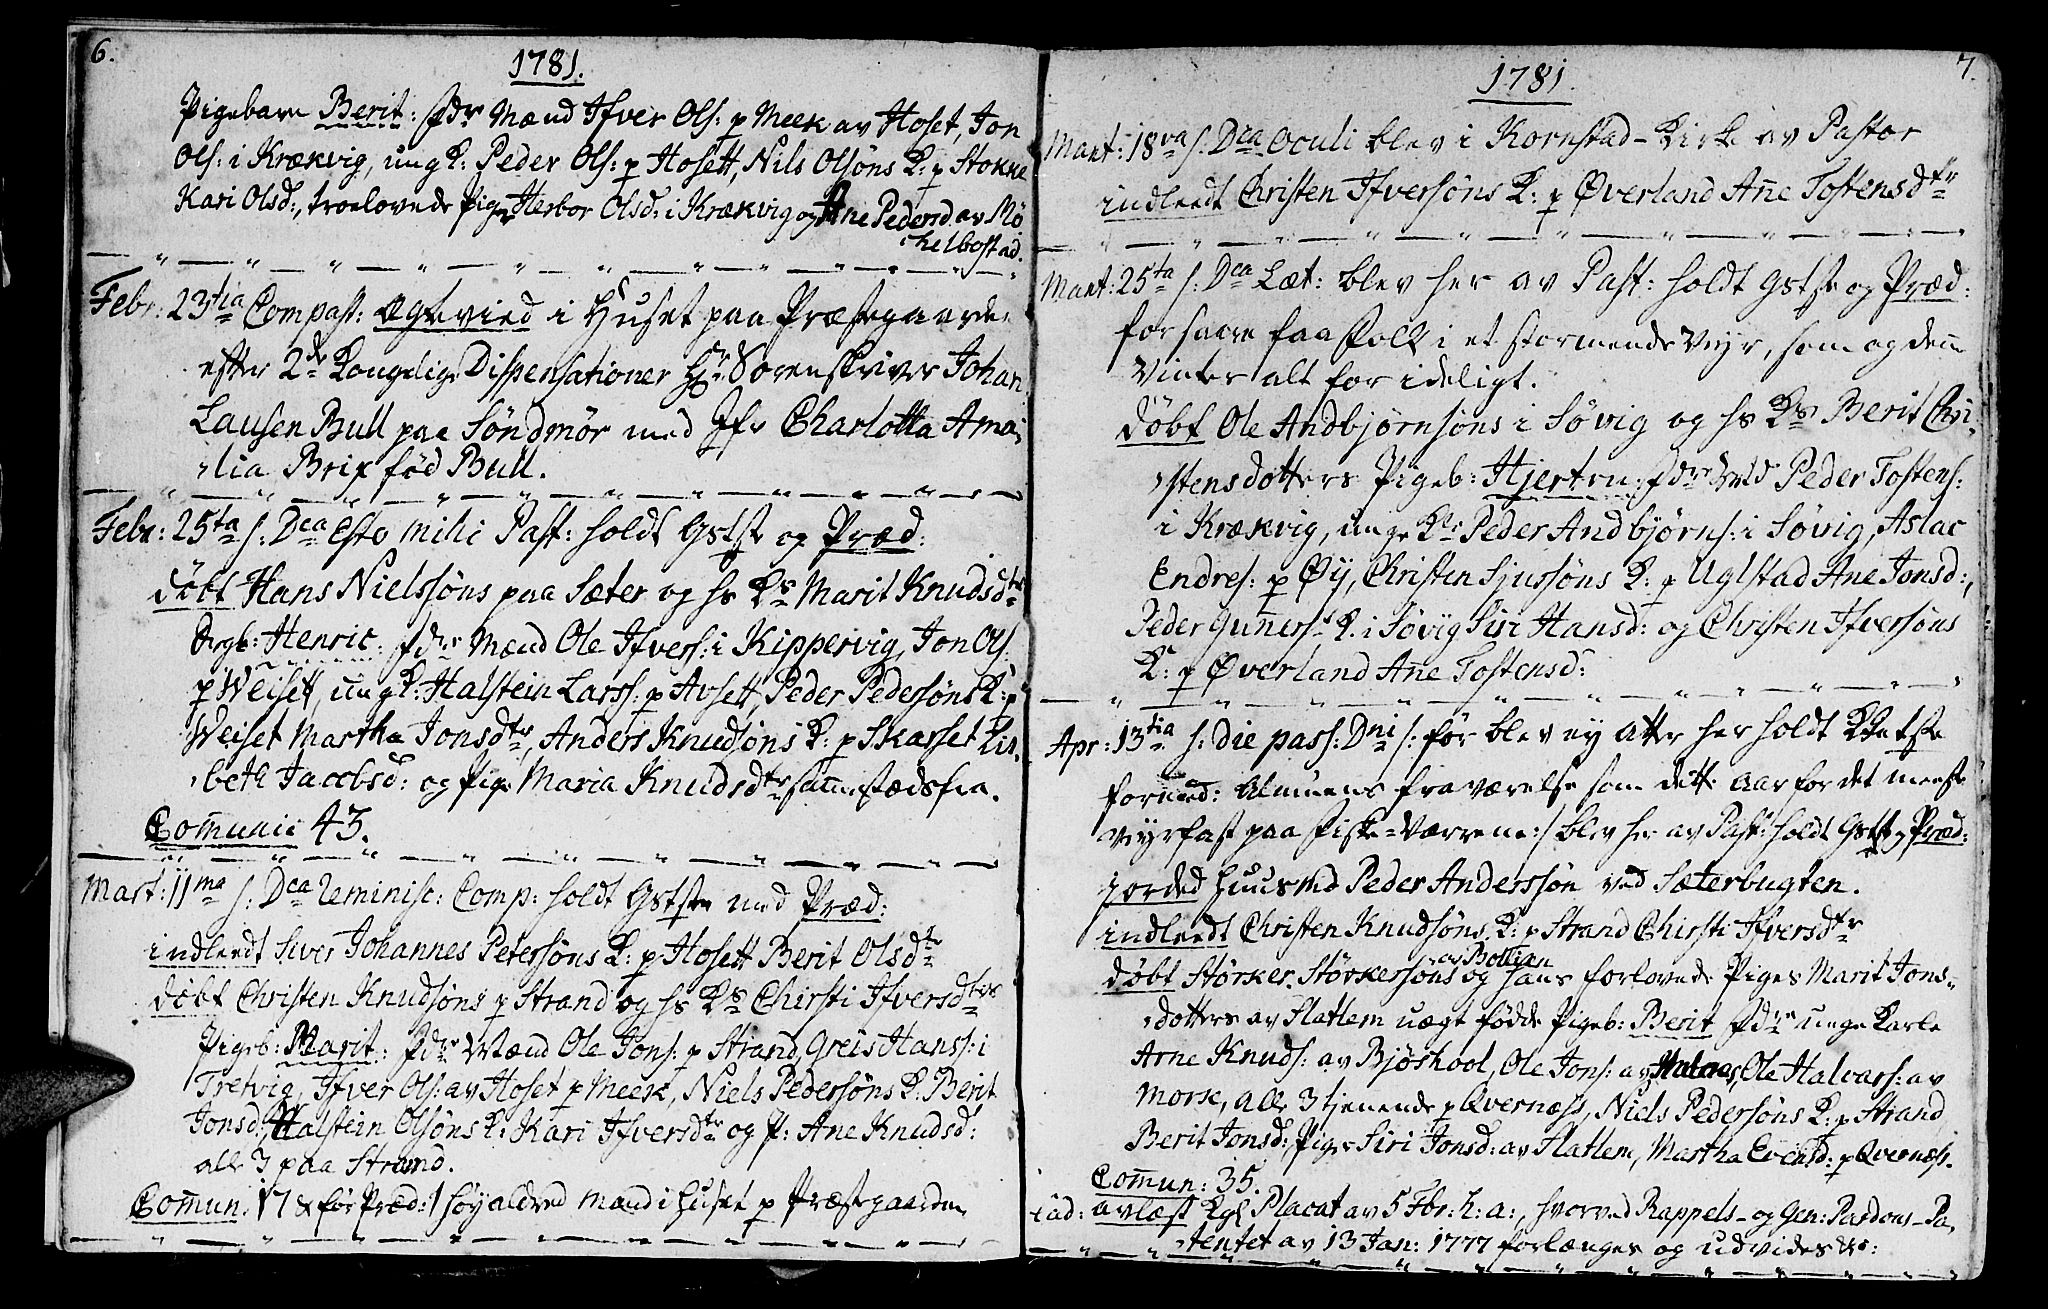 6.
1781.
Pigebarn Berit: fdr Mænd Ifver Ols: p Meek av Hoset, Jon
Ols: i Krækvig, ung K: Peder Ols: p Hosett, Nils Olsøns K: p Stokke
Kari Olsd:, troelovede Pige Herbor Olsd: i Krækvig og Ane Pedersd av Mø
chelbostad.
Febr: 23tia Compast: Ægtevied i Huset paa Præstegaarden
efter 2de Kongelige Dispensationer Hr Sorenskriver Johan
Lausen Bull paa Söndmör med Jfr Charlotta Ama,
lia Brix fød Bull.
Febr: 25ta s: Dca Esto mihi Past: holdt Gstste og Præd:
døbt Hans Nielssøns paa Sæter og hs Ks Marit Knudsdtrs
Drgb: Henric. fdr Mænd Ole Ifvers: i Kippervig, Jon Ols
p Weisett, ung K: Halstein Larss: p Avsett, Peder Pedersøns K: p
Weiset Martha Jonsdtr, Anders Knudsøns K: p Skarset Lis,
beth Jacobsd: og Pige Maria Knudsdtr sammestædsfra.
Com̄unic 43.
Mart: 11ma s: Dca Reminisc: Comp: holdt Gstste med Præd:
indleedt Siver Johannes Petersøns K: p Hosett Berit Olsdtr
døbt Christen Knudsøns p Strand og hs Ks Chirsti Ifversdtrs
Pigeb: Marit: fdr Mænd Ole Jons: p Strand, Greis Hanss: i
Tretvig, Ifver Ols: av Hoset p Meek, Niels Pedersøns K: Berit
Jonsd:, Halstein Olsøns K: Kari Ifversdtr og P: Ane Knudsd:
alle 3 paa Strand.
Com̄un. 17 & før Præd: / høyaldred Mand i Huset p Præstegaarden
1781.
7.
Mart: 18va s: Dca Oculi blev i Kornstad-Kirke av Pastor
indleedt Christen Ifversøns K: p Øverland An̄e Tostensdtr
Mart: 25ta s: Dca Læt: blev her av Past: holdt Gstste og Præd:
for saare faa Folk i et stormende Veyr, som og den̄e
Vinter alt for ideligt.
døbt Ole Andbjørnsøns i Søvig og hs Ks Berit Chri,
stensdotters Pigeb: Hjertru: fdr Peder Tostens:
i Krækvig, unge K: Peder Andbjørns: i Søvig, Aslac
Endres: p Øy, Christen Sjurssøns K: p Uglstad Ane Jonsd:,
Peder Gun̄ers: K. i Søvig Siri Hansd: og Christen Ifversøns
K: p Øverland An̄e Tostensd:
Apr: 13tia s: die pass: Dni /: før blev ey atter her holdt
formed: Almuens fraværelse som dette Aar for det meeste
veyrfast paa Fiske-Værrene:/ blev her av Past: holdt Gstst og Præd:
jorded Huusmd Peder Anderssøn ved Sæterbugten.
indleedt Christen Knudsøns K: p Strand Chirsti Ifversdtr
av Bollien
døbt Størker Størkersøns og hans forlovede Piges Marit Jons-
dotters av Flatlem uægt fødde Pigeb: Berit fdr unge Karle
Arne Knuds: av Bjøshool, Ole Jons: av Ole Halvars: av
Morse, alle 3 tjenende p Qvernæss, Niels Pedersøns K: p Strand
Berit Jonsd: Pige Siri Jonsd: av Flatlem, Martha Evensd: p Qvernæss.
Com̄un: 35.
avlæst Kgl Placat av 5 Fbr: h: a:, hvorved Rappels- og Gen: Pardons-Pa,
tentet av 13 Jan: 1777 forlænges og udvides &c: